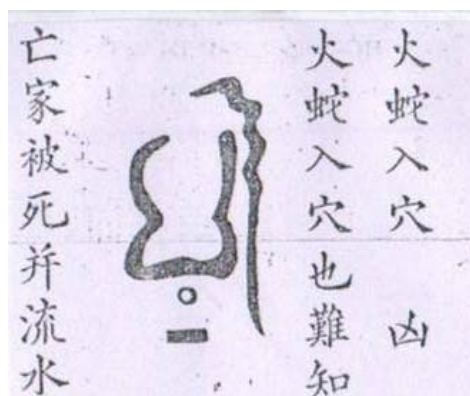 火蛇入穴　凶
火蛇入穴也難知
亡家被死并流水